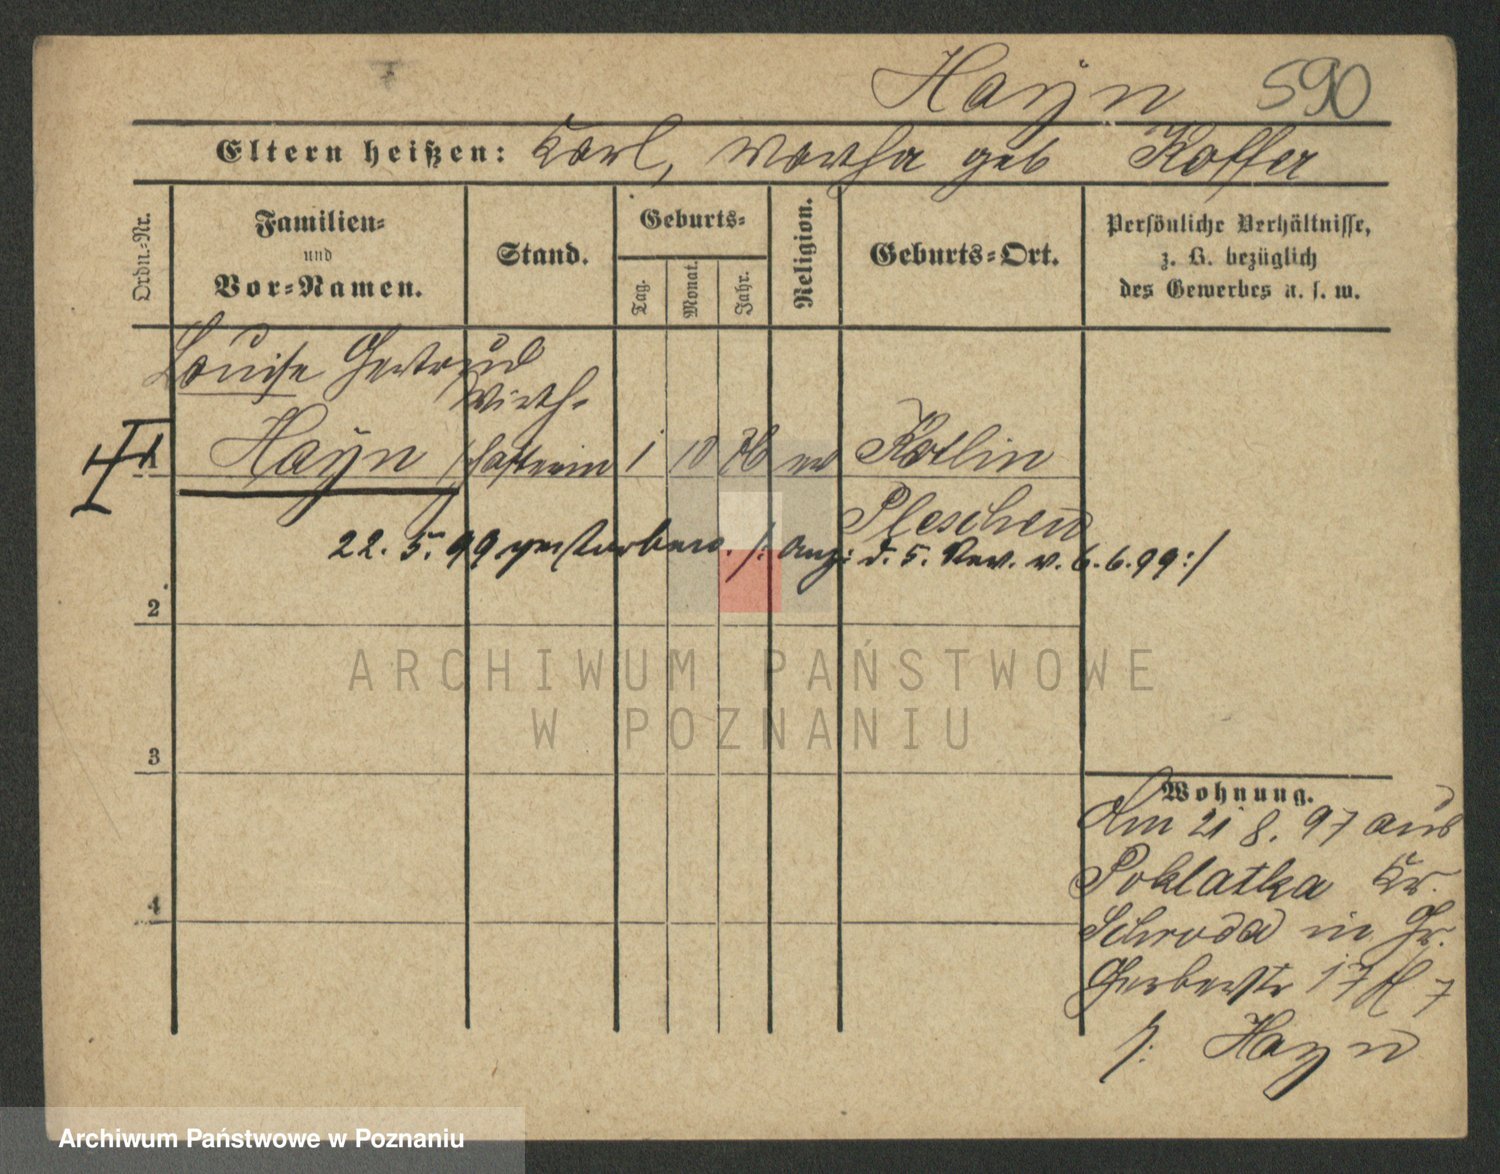 Hayn 590
Eltern heißen: Karl, Martha geb Koffer
Ordn.-Nr.
Familien-
und
Vor-Namen.
Stand.
Geburts-
Tag.
Monat.
Jahr.
Religion.
Geburts-Ort.
Persönliche Verhältnisse,
z. B. bezüglich
des Gewerbes u. s. w.
Louise Gertrud
Wirth-
1 Hayn schafterin 1 10 ev Kotlin
Pleschen
22. 5. 99 gestorben. /: Anz: d. 5. Rev. v. 6.6.99:/
2
3
4
Wohnung.
Am 21 8. 97 aus
Poklatka Kr.
Schroda in Gr.
Gerberstr 17 7
/: Hayn
ARCHIWUM PAŃSTWOWE
W POZNANIU
Archiwum Państwowe w Poznaniu